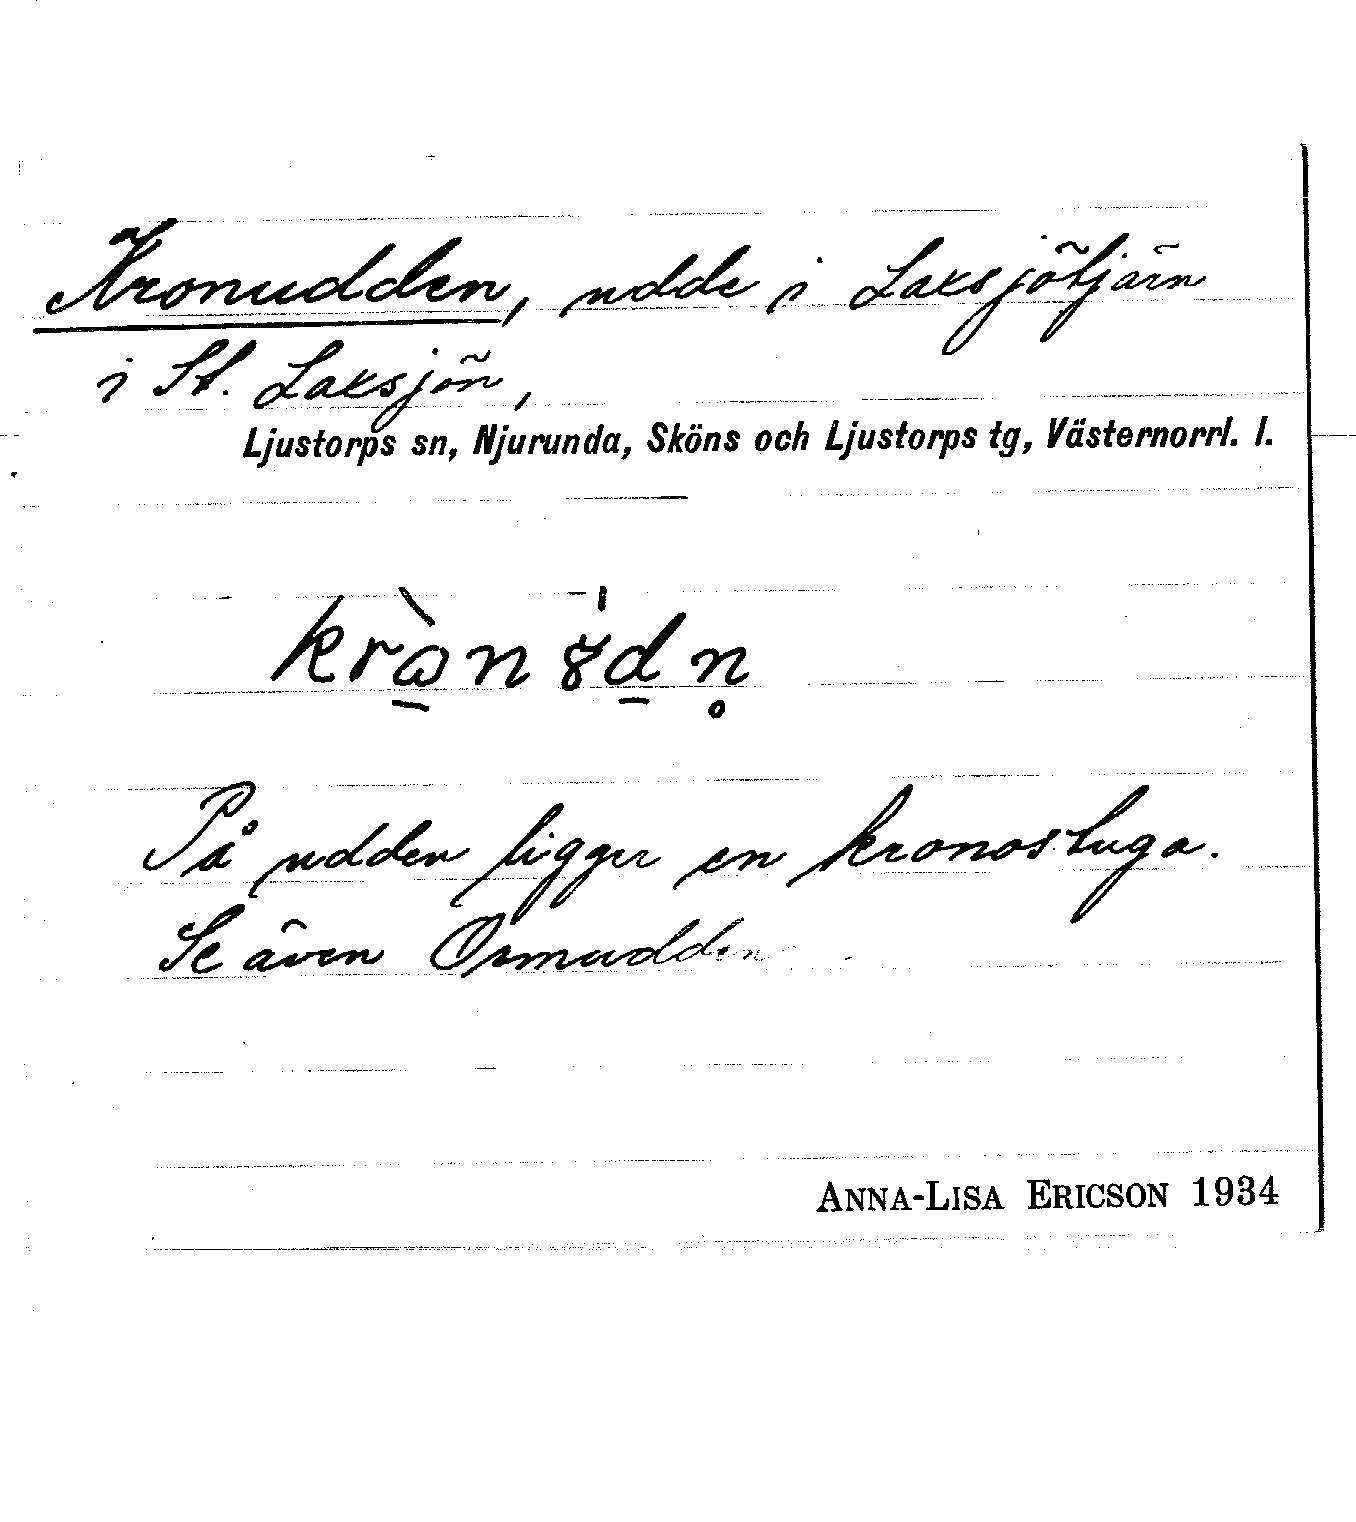 Kronudden, udde i Laksjötjärn
i St. Laksjön,
Ljustorps sn, Njurunda, Sköns och Ljustorps tg, Västernorrl. l.
På udden ligger en kronostuga.
Se även Ormudden
ANNA-LISA ERICSON 1934